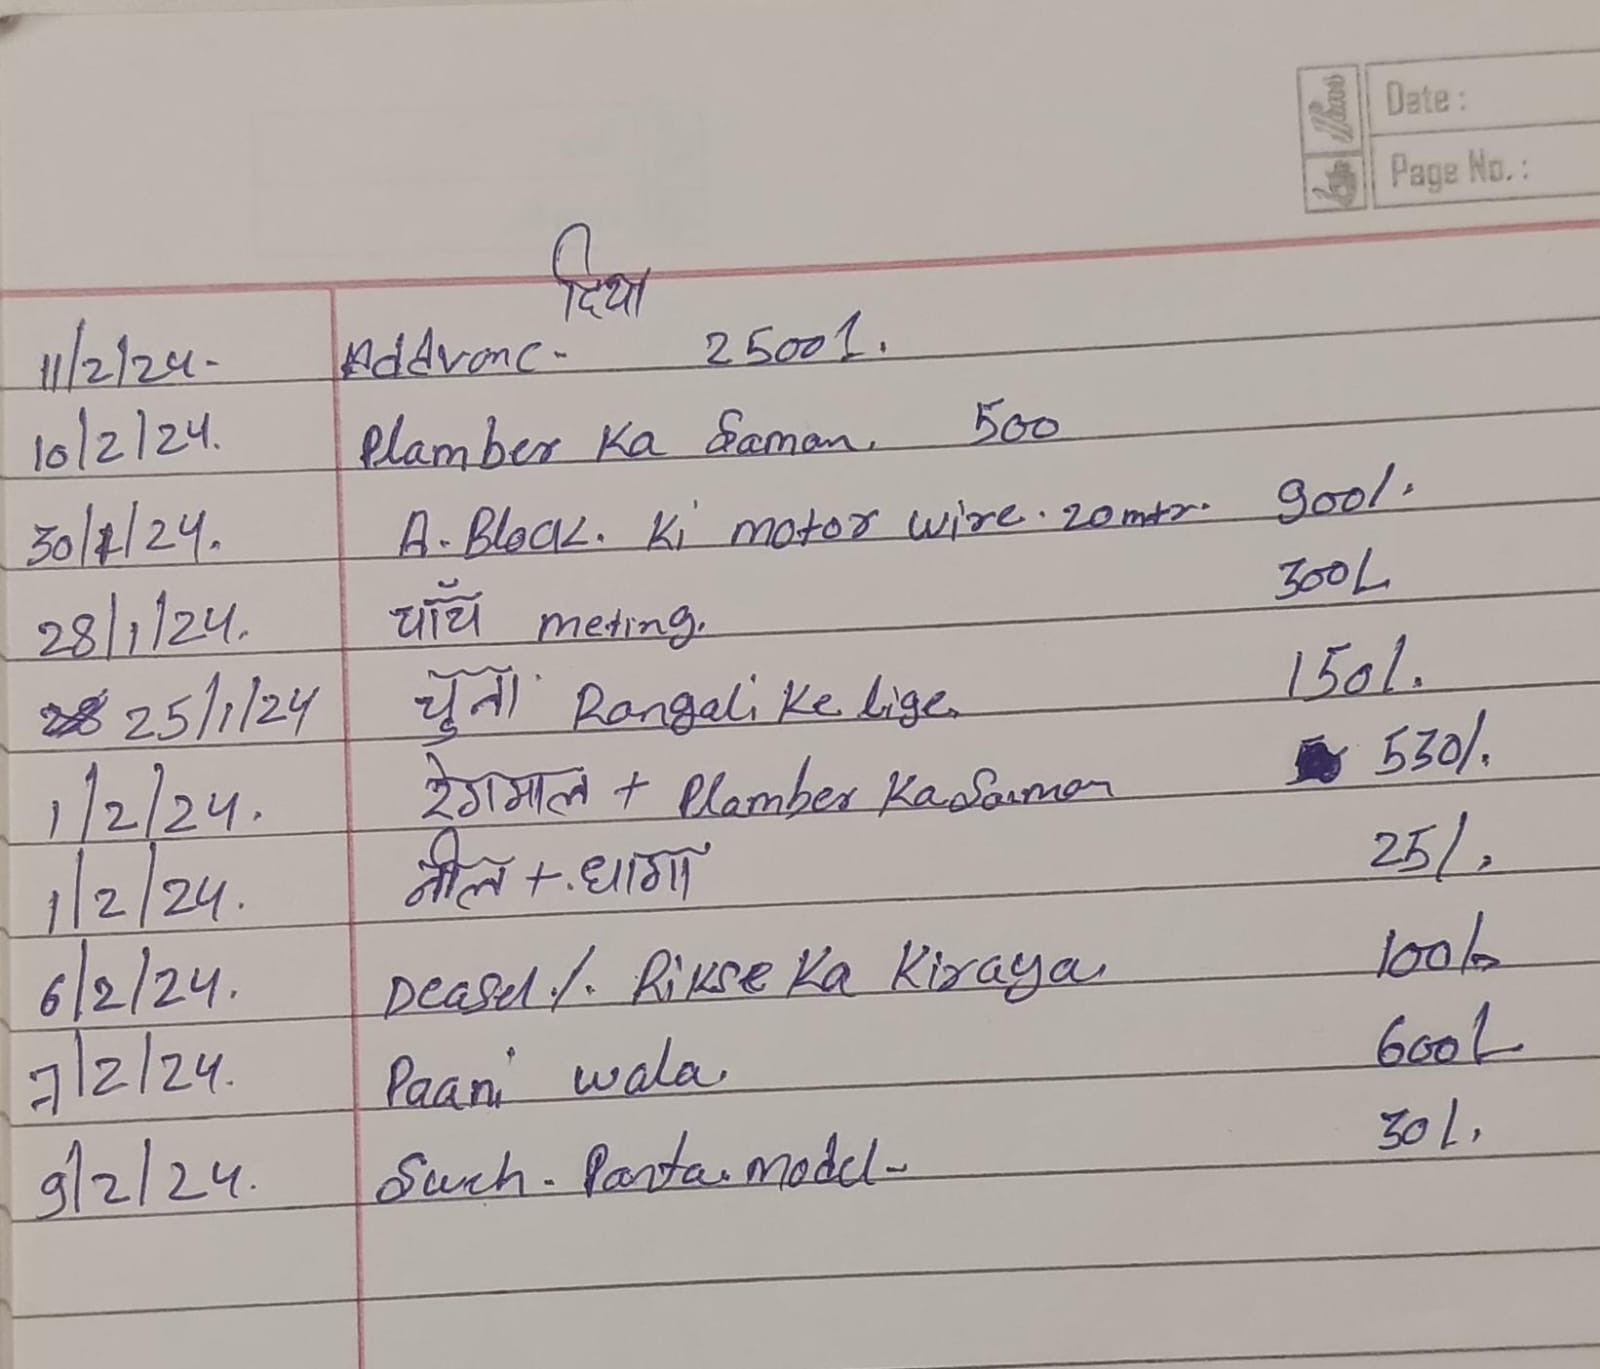 Date :
Page No. :
दिया
11/2/24. Addvanc - 2500/.
10/2/24. Plamber Ka Saman. 500
30/1/24. A. Block. Ki motor wire. 20 mtr. 900/.
28/1/24. meting. 300/
25/1/24 चूना Rangali Ke lige. 150/.
1/2/24. रेगमाल + Plamber Ka Saman 530/.
1/2/24. नील +. धागा 25/.
6/2/24. Deasel ./. Rikse Ka Kiraya. 100/
7/2/24. Paani wala. 600/
9/2/24. model - 30/.